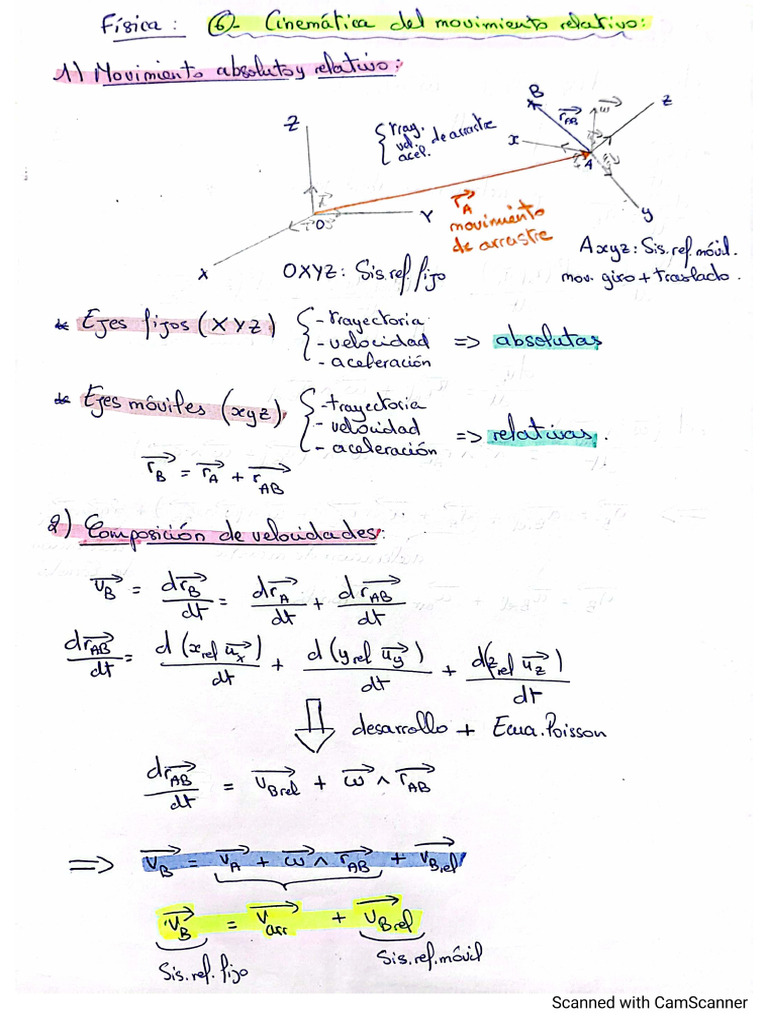 Física: ⑥- Cinemática del movimiento relativo:
1) Movimiento absoluto y relativo:
Z
Y
X
O
{ tray. vel. acel. de arrastre
B
r⃗_AB
ω⃗
z
x
A
y
r⃗_A
movimiento
de arrastre
OXYZ: Sis. ref. fijo
Axyz: Sis. ref. móvil.
mov. giro + traslado.
* Ejes fijos (XYZ) { - trayectoria - velocidad - aceleración => absolutas
* Ejes móviles (xyz) { - trayectoria - velocidad - aceleración => relativas.
r⃗_B = r⃗_A + r⃗_AB
2) Composición de velocidades:
v⃗_B = dr⃗_B/dt = dr⃗_A/dt + dr⃗_AB/dt
dr⃗_AB/dt = d(x_rel u⃗_x)/dt + d(y_rel u⃗_y)/dt + d(z_rel u⃗_z)/dt
⇓ desarrollo + Ecua. Poisson
dr⃗_AB/dt = v⃗_Brel + ω⃗ ∧ r⃗_AB
=> v⃗_B = v⃗_A + ω⃗ ∧ r⃗_AB + v⃗_Brel
v⃗_B = v⃗_arr + v⃗_Brel
Sis. ref. fijo
Sis. ref. móvil
Scanned with CamScanner